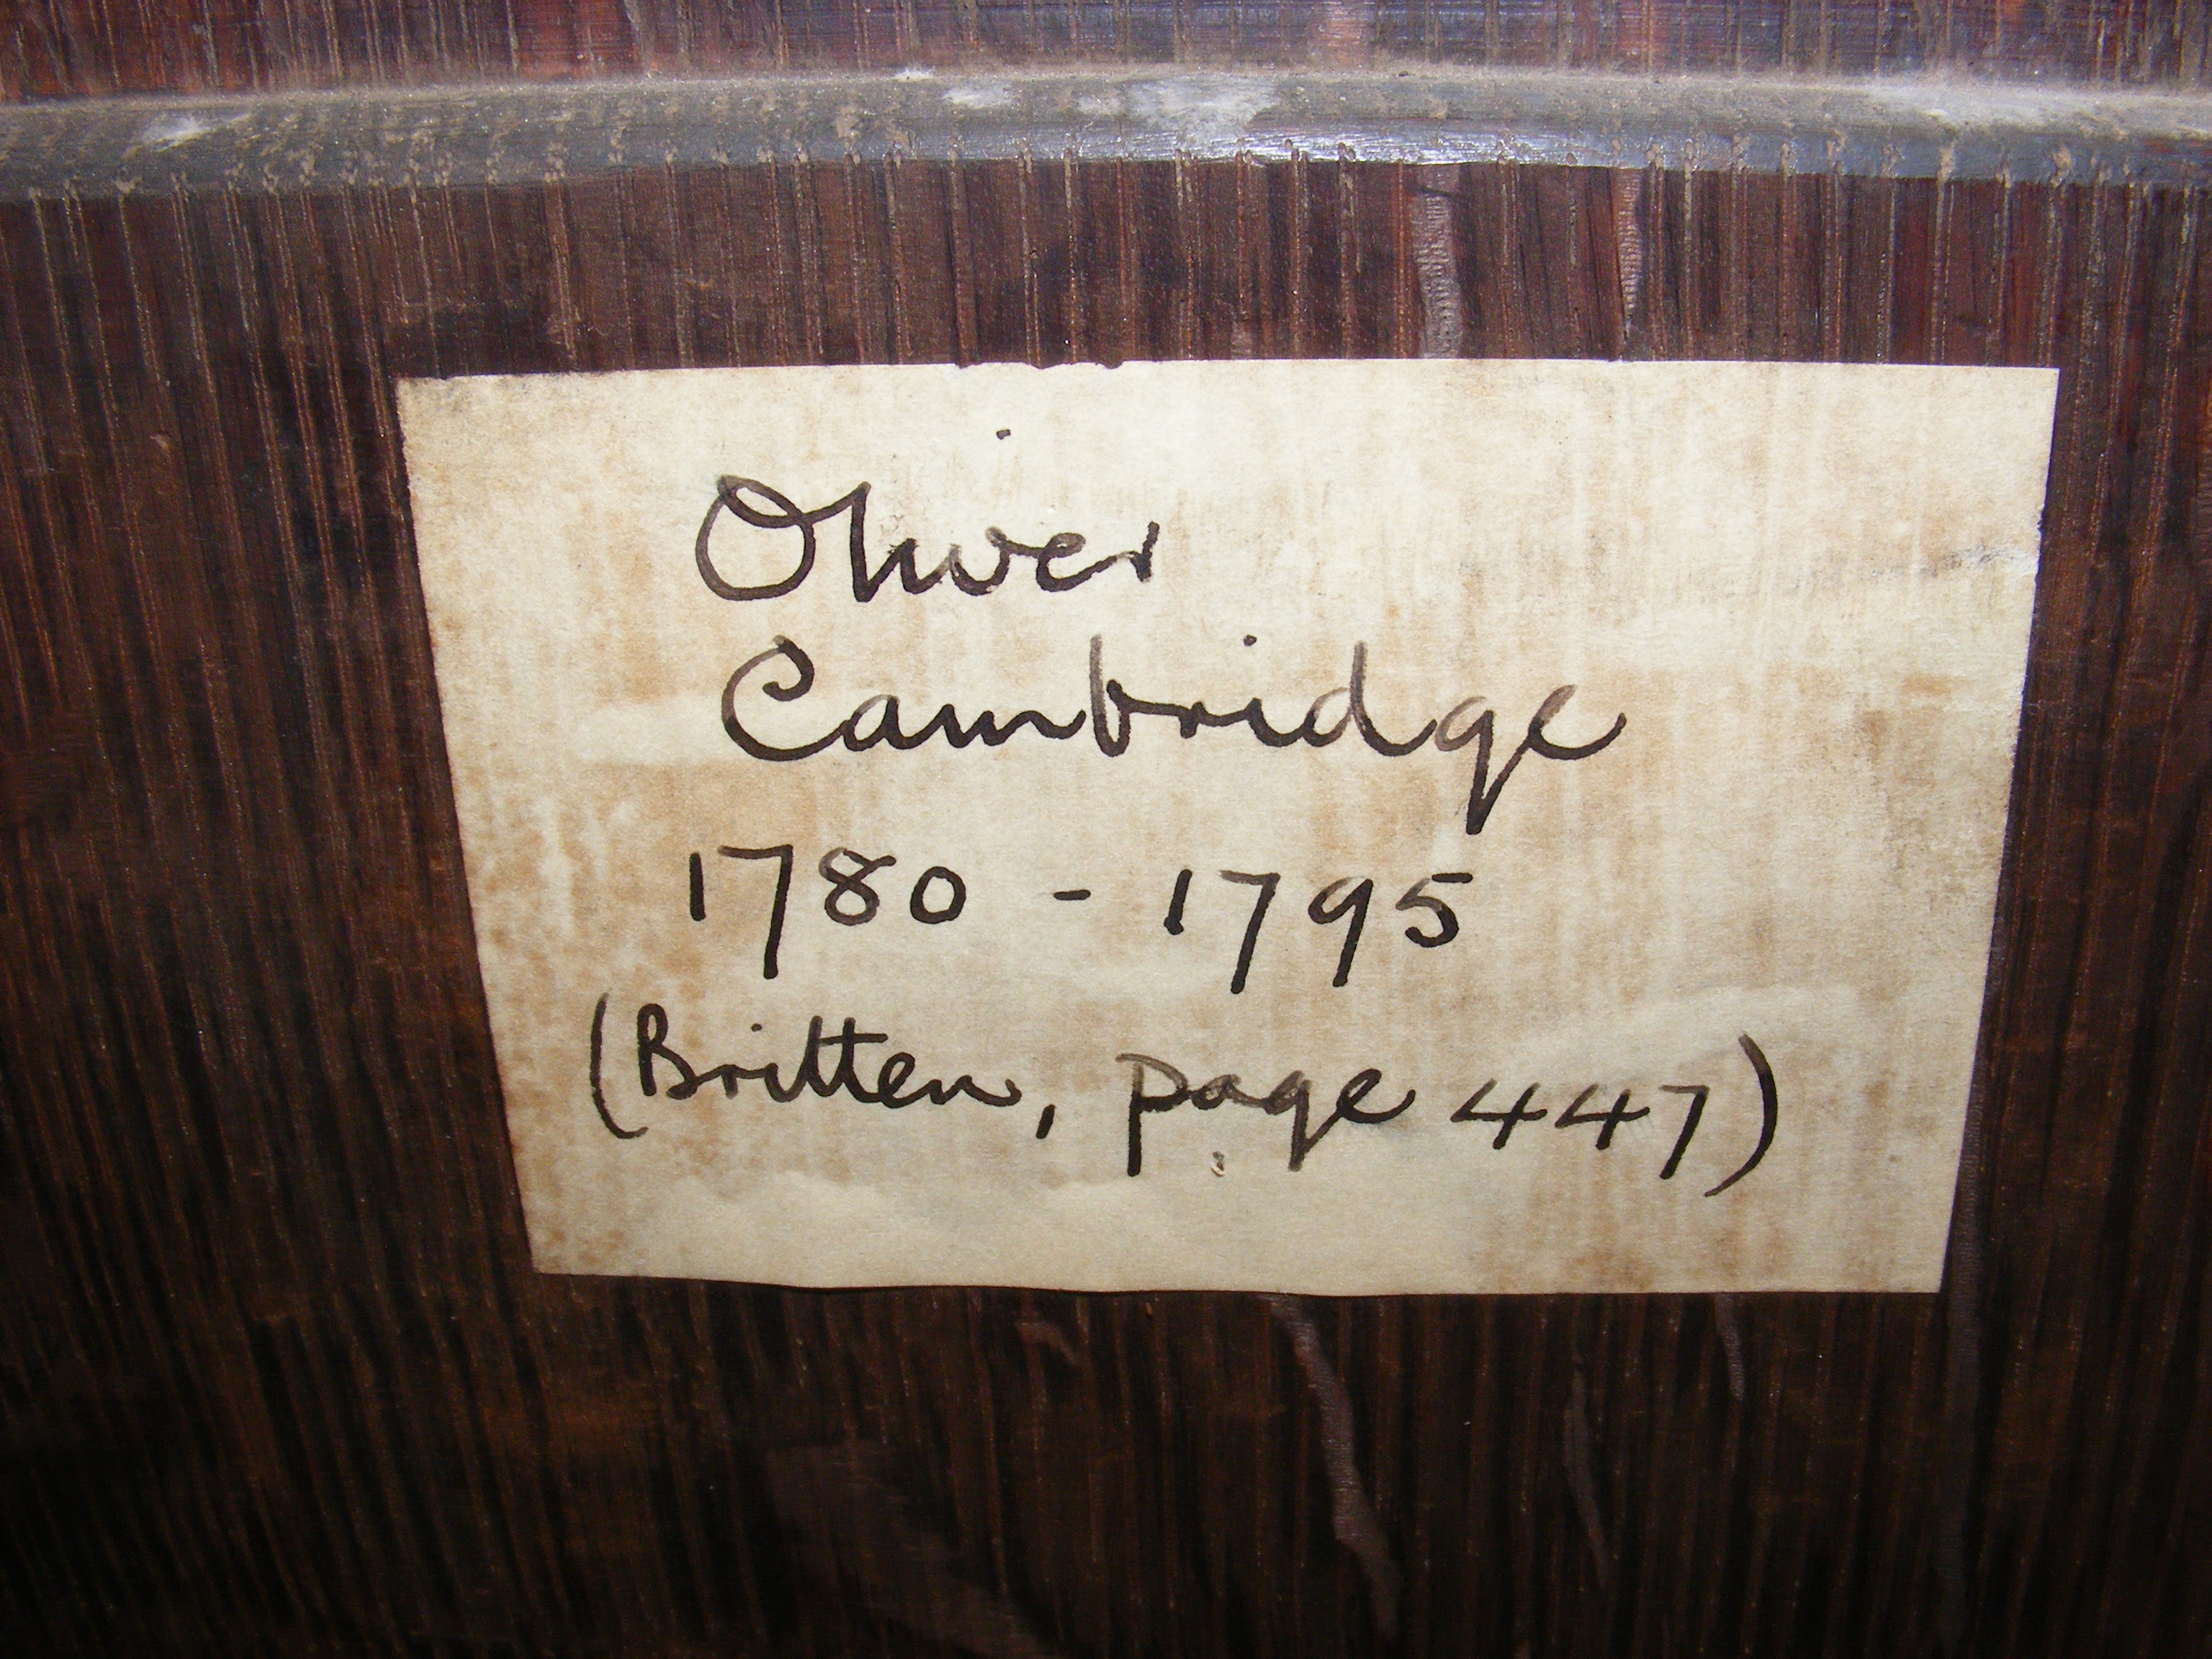 Oliver
Cambridge
1780 - 1795
(Britten, page 447)